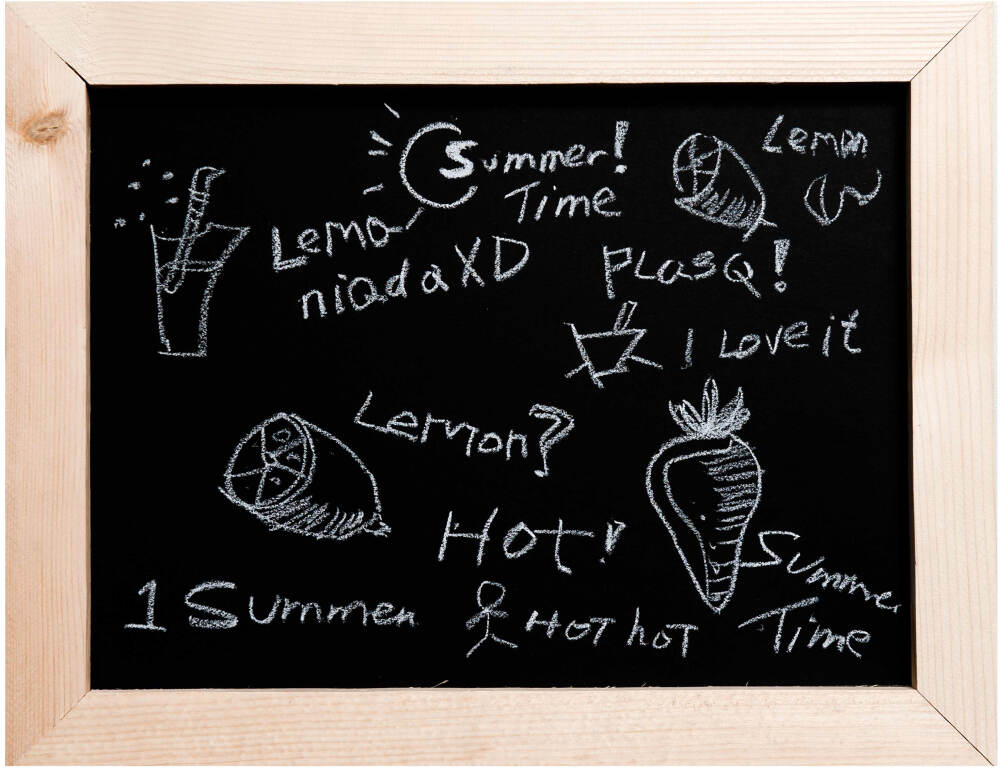 Summer!
Time
Lemo
niadaXD
Lemon
PLasQ!
I Love it
Lemon?
Hot!
1 Summer
HOT hOT
Summer
Time